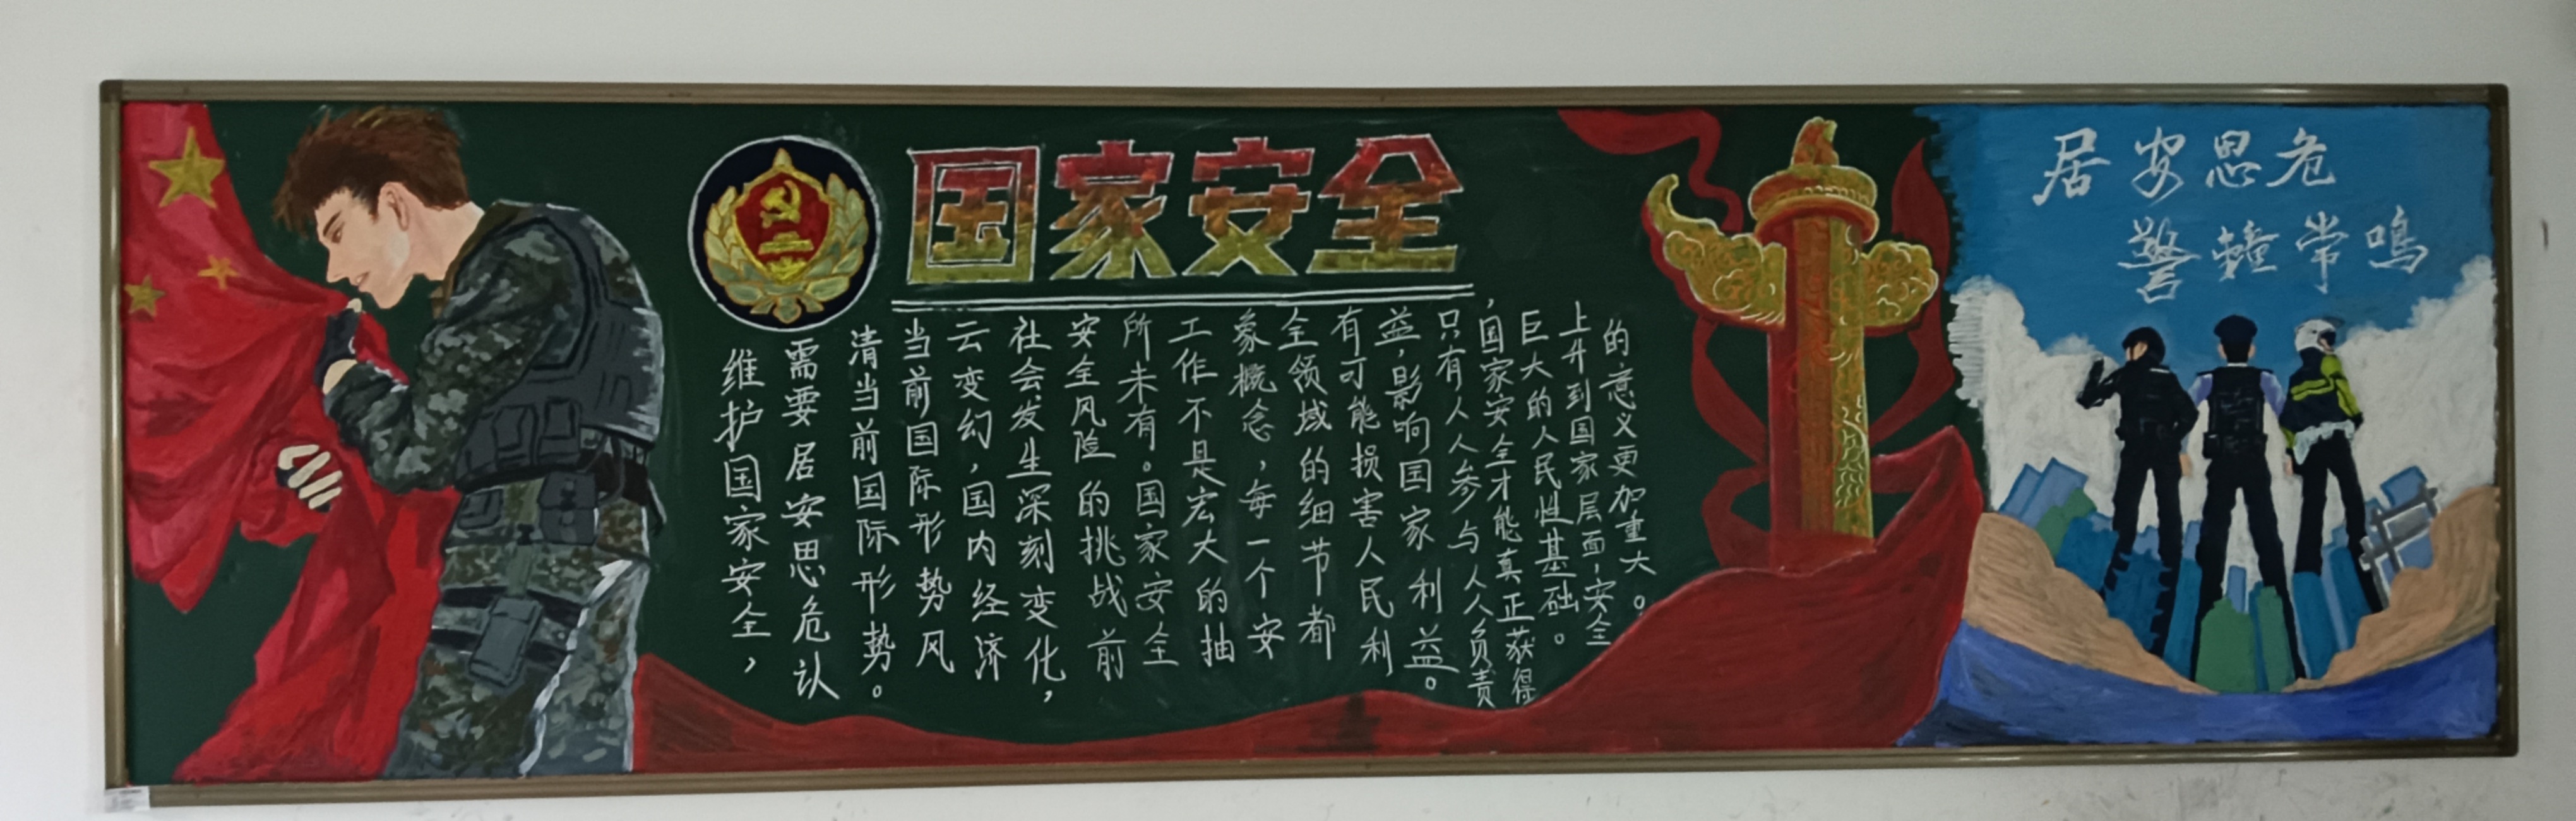 国家安全
维护国家安全，
需要居安思危认
清当前国际形势。
当前国际形势风
云变幻，国内经济
社会发生深刻变化，
安全风险的挑战前
所未有。国家安全
工作不是宏大的抽
象概念，每一个安
全领域的细节都
有可能损害人民利
益，影响国家利益。
只有人人参与人人负责
，国家安全才能真正获得
巨大的人民性基础。
上升到国家层面，安全
的意义更加重大。
居安思危
警鐘常鸣